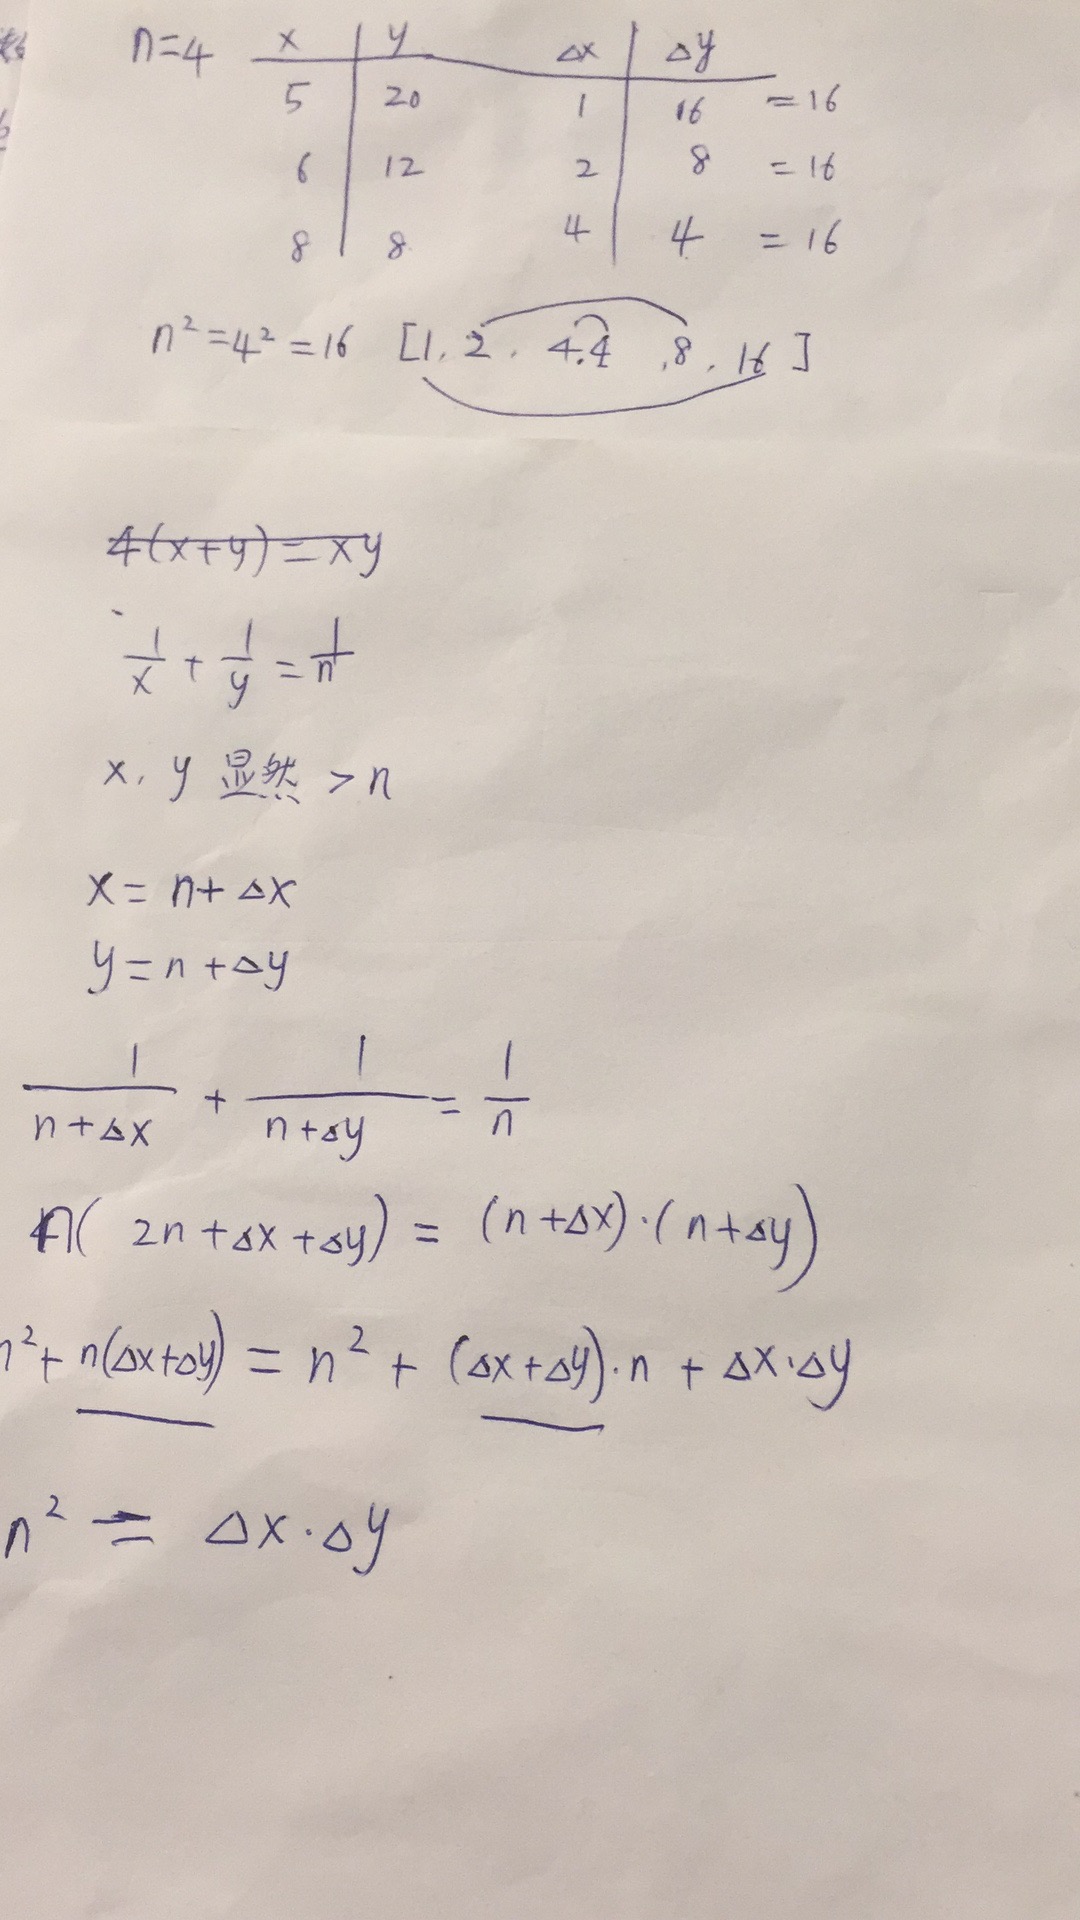 n=4 x y Δx Δy
5 20 1 16 =16
6 12 2 8 =16
8 8 4 4 =16
n²=4²=16 [1, 2, 4,4, 8, 16]
4(x+y)=xy
1/x + 1/y = 1/n
x, y 显然 >n
x= n+Δx
y=n+Δy
1/(n+Δx) + 1/(n+Δy) = 1/n
n(2n+Δx+Δy) = (n+Δx)·(n+Δy)
n²+n(Δx+Δy) = n²+(Δx+Δy)·n+Δx·Δy
n² = Δx·Δy